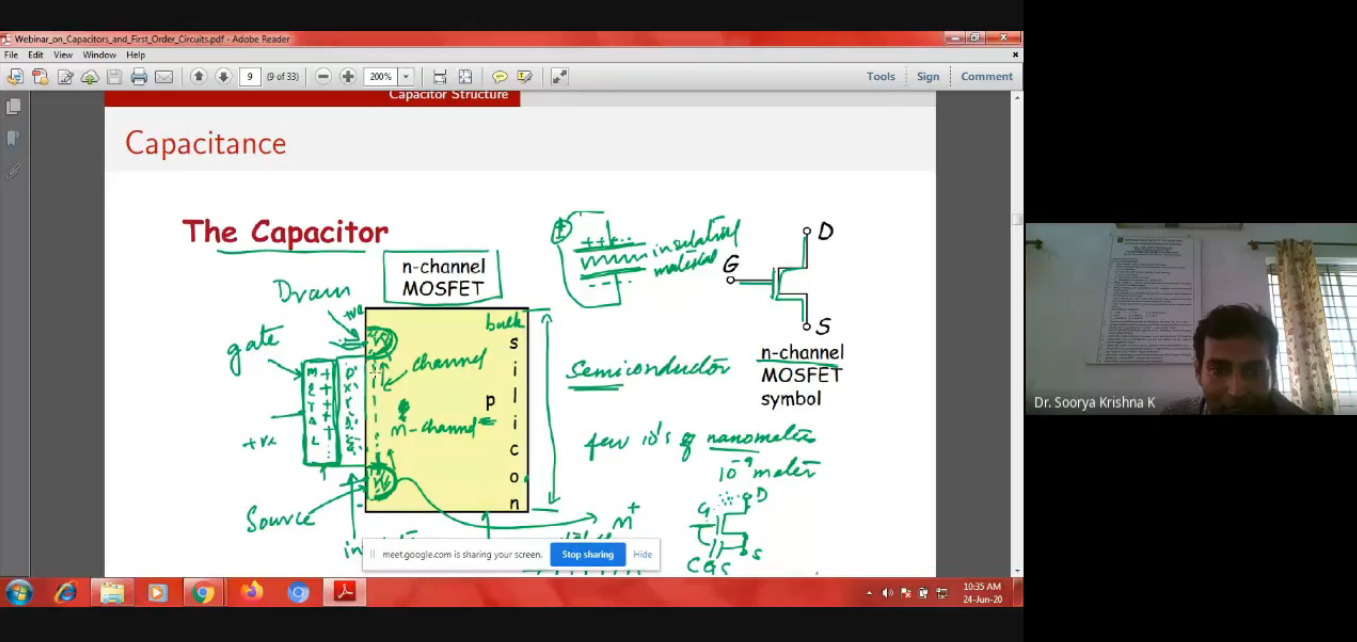 Webinar_on_Capacitors_and_First_Order_Circuits.pdf - Adobe Reader
File Edit View Window Help
9 (9 of 33) 200% Tools Sign Comment
Capacitor Structure
Capacitance
The Capacitor
n-channel
MOSFET
++ ..
insulating
material
- - - -
G
D
S
n-channel
MOSFET
symbol
Drain
+ve
gate
METAL
+ve
Source
channel
n-channel
bulk
p
silicon
Semiconductor
few 10's of nanometer
10⁻⁹ meter
n+
G
D
S
CGS
meet.google.com is sharing your screen. Stop sharing Hide
10:35 AM
24-Jun-20
Dr. Soorya Krishna K